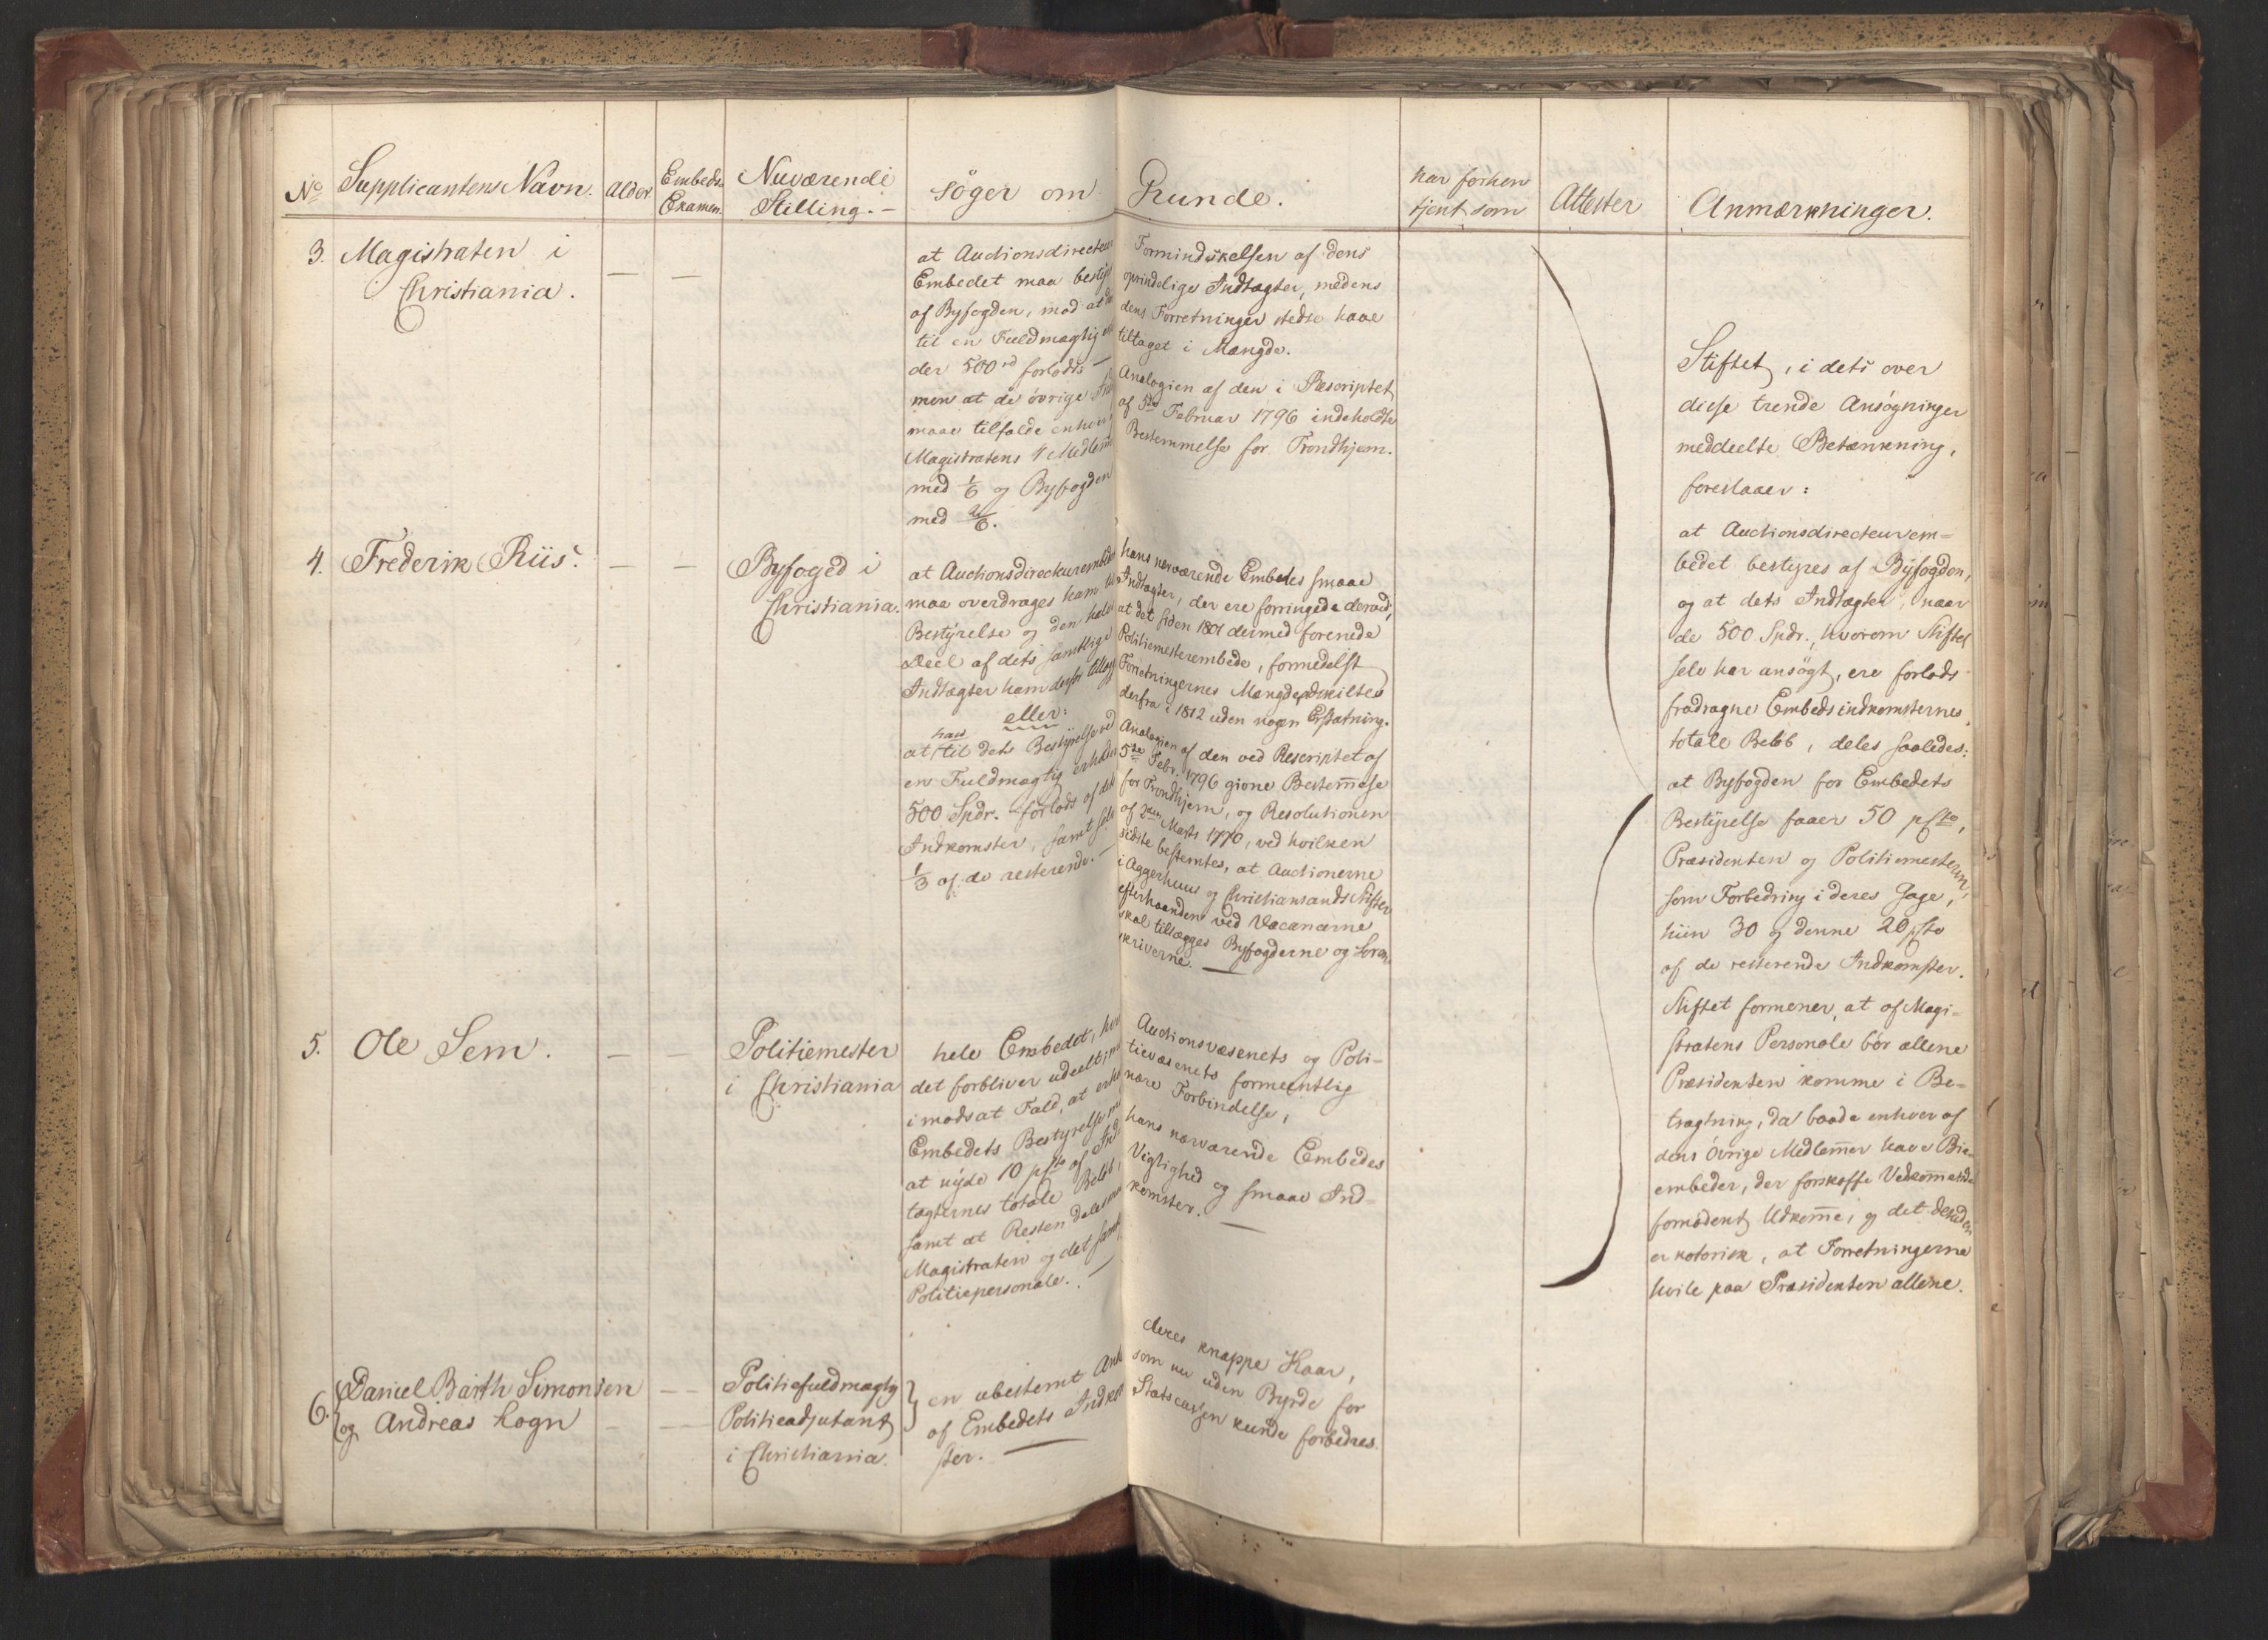 No
Supplicantens Navn.
Alder
Embeds-
Examen.
Nuværende
Stilling. -
søger om
Grunde.
har forhen
tjent som
Attester
Anmærkninger.
3. Magistraten i
Christiania.
— —
at Auctionsdirecteur
Embedet maa
af Byfogden, mod at
til en Fuldmægtig
der 500 rd forlods —
men at de øvrige
maae tilfalde enhver
Magistratens 4 Medlem
med 1/6 og Byfogden
med 2/6.
Formindskelsen af dens
oprindelige Indtægter, medens
dens Forretninger stedse have
tiltaget i Mængde.
Analogien af den i Rescriptet
af 5te Februar 1796 indeholdte
Bestemmelse for Trondhjem.
4. Frederik Riis.
— —
Byfoged i
Christiania.
at Auctionsdirecteurembedet
maa overdrages ham til
Bestyrelse og den hele
Deel af dets samtlige
Indtægter ham derfor tillagt
eller:
at han til dets Bestyrelse ved
en Fuldmægtig erholder
500 Spdr. forlods af dets
Indkomster, samt selv
1/3 af de resterende. —
hans nærværende Embedes smaae
Indtægter, der ere forringede derved,
at det siden 1801 dermed forenede
Politiemesterembede, formedelst
Forretningernes Mængde, adskiltes
derfra i 1812 uden nogen Erstatning.
Analogien af den ved Rescriptet af
5te Febr. 1796 givne Bestem̅else
for Trondhjem, og Resolutionen
af 2den Marts 1770, ved hvilken
sidste bestemtes, at Auctionerne
i Aggerhuus og Christiansands Stifter
efterhaanden ved Vacancerne
skal tillægges Byfogderne og Soren-
skriverne. —
5. Ole Sem.
— —
Politiemester
i Christiania
hele Embedet, hvis
det forbliver udeelt;
i modsat Fald, at
Embedets Bestyrelse
at nyde 10 pCto af Ind
tægternes totale Beløb,
samt at Resten deles
Magistraten og det samt
Politiepersonale. —
Auctionsvæsenets og Poli-
tievæsenets formeentlig
nære Forbindelse,
hans nærværende Embedes
Vigtighed og smaae Ind-
komster. —
6. Daniel Barth Simonsen
og Andreas Logn
— —
— —
Politiefuldmægtig
Politieadjutant
i Christiania.
en ubestemt
af Embedets
ster. —
deres knappe Kaar,
som nu uden Byrde for
Statscassen kunde forbedres.
Stiftet, i dets over
disse trende Ansøgninger
meddeelte Betænkning,
foreslaaer:
at Auctionsdirecteurem-
bedet bestyres af Byfogden,
og at dets Indtægter, naar
de 500 Spdr., hvorom Stiftet
selv har ansøgt, ere forlods
fradragne Embedsindkomsternes
totale Beløb, deles saaledes:
at Byfogden for Embedets
Bestyrelse faaer 50 pCto,
Præsidenten og Politiemesteren,
som Forbedring i deres Gage,
hiin 30 og denne 20 pCto
af de resterende Indkomster.
Stiftet formener, at af Magi-
stratens Personale bør allene
Præsidenten komme i Be-
tragtning, da baade enhver af
dens øvrige Medlem̅er have Bie-
embeder, der forskaffe Vedkom̅ende
fornødent Udkom̅e, og det desuden
er notorisk, at Forretningerne
hvile paa Præsidenten allene.